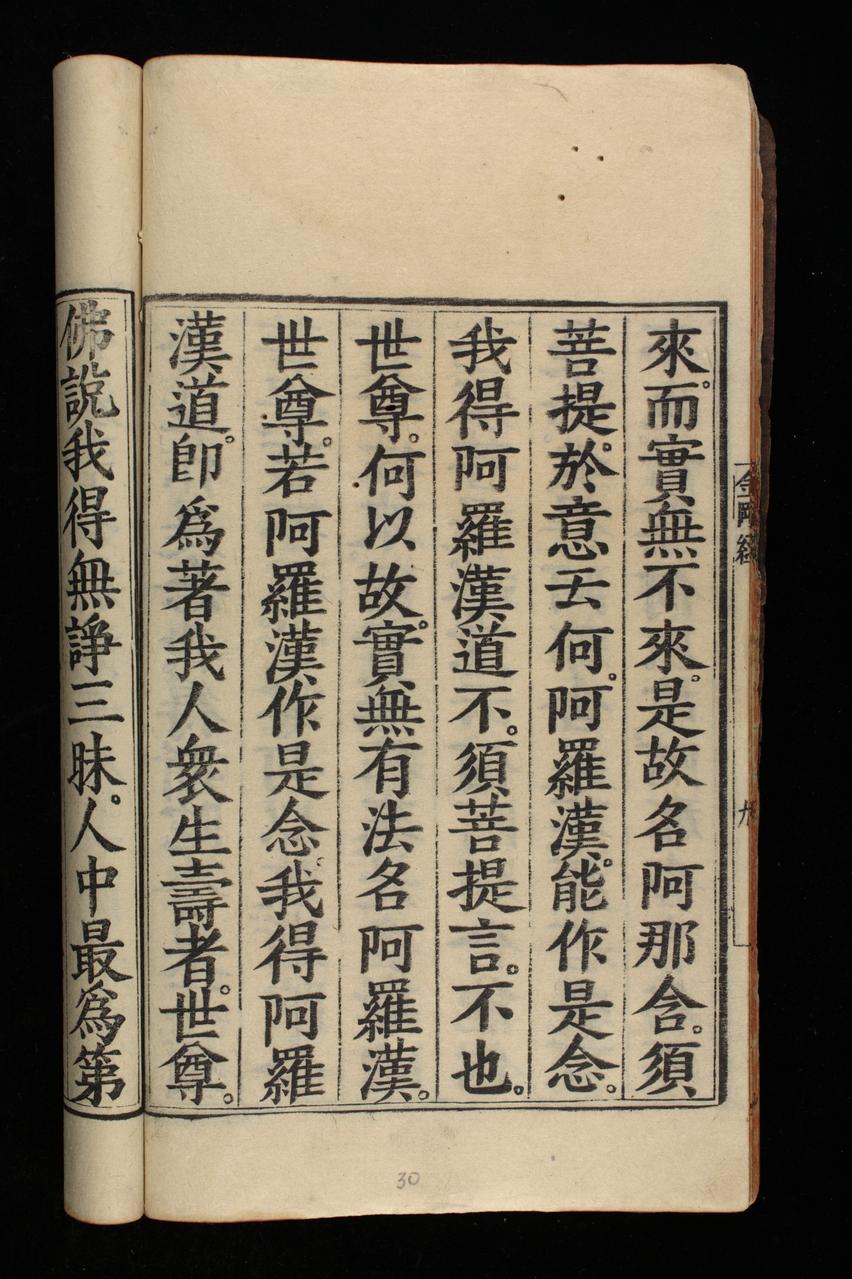 來。而實無不來。是故名阿那含。須
菩提。於意云何。阿羅漢。能作是念。
我得阿羅漢道不。須菩提言。不也。
世尊。何以故。實無有法名阿羅漢。
世尊。若阿羅漢。作是念。我得阿羅
漢道。卽爲著我人衆生壽者。世尊。
佛說我得無諍三昧。人中最爲第
金剛經
30